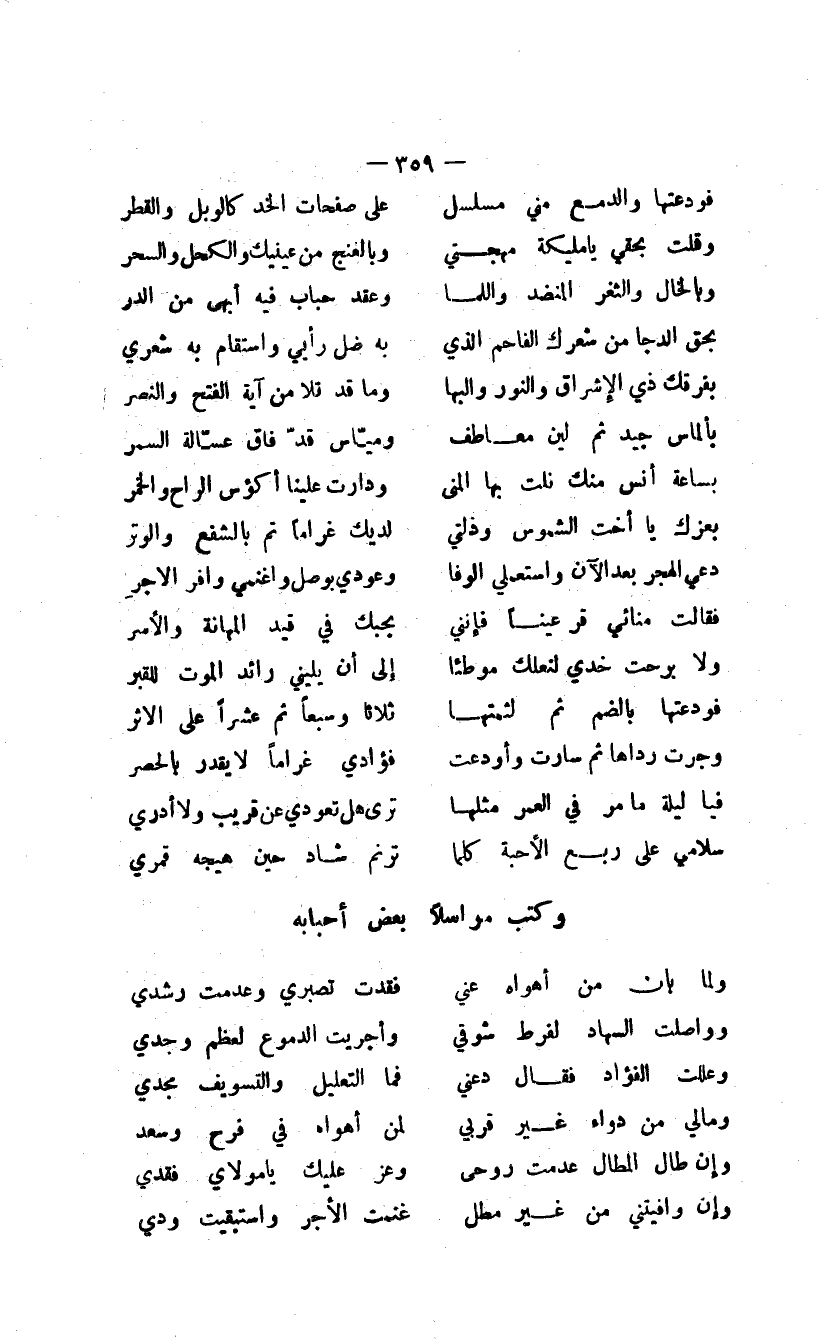 — ٣٥٩ —
فودعتها والدمع مني مسلسل على صفحات الخد كالوبل والقطر
وقلت بحقي يامليكة مهجتي وبالغنج من عينيك والكحل والسحر
وبالخال والثغر المنضد واللما وعقد حباب فيه أبهى من الدر
بحق الدجا من شعرك الفاحم الذي به ضل رأيي واستقام به شعري
بفرقك ذي الإشراق والنور والبها وما قد تلا من آية الفتح والنصر
بألماس جيد ثم لين معاطف وميّاس قدّ فاق عسّالة السمر
بساعة أنس منك نلت بها المنى ودارت علينا أكؤس الراح والخمر
بعزك يا أخت الشموس وذلتي لديك غراماً ثم بالشفع والوتر
دعي الهجر بعد الآن واستعملي الوفا وعودي بوصل واغنمي وافر الاجر
فقالت منائي قر عيناً فإنني بحبك في قيد المهانة والأسر
ولا برحت خدي لنعلك موطئا إلى أن يليني رائد الموت للقبر
فودعتها بالضم ثم لثمتها ثلاثا وسبعاً ثم عشراً على الاثر
وجرت رداها ثم سارت وأودعت فؤادي غراماً لايقدر بالحصر
فيا ليلة مامر في العمر مثلها ترى هل تعودي عن قريب ولا أدري
سلامي على ربع الأحبة كلما ترنم شاد حين هيجه قمري
وكتب مراسلاً بعض أحبابه
ولما بان من أهواه عني فقدت تصبري وعدمت رشدي
وواصلت السهاد لفرط شوقي وأجريت الدموع لعظم وجدي
وعللت الفؤاد فقال دعني فما التعليل والتسويف مجدي
ومالي من دواء غير قربي لمن أهواه في فرح وسعد
وإن طال المطال عدمت روحى وعز عليك يامولاي فقدي
وإن وافيتني من غير مطل غنمت الأجر واستبقيت ودي